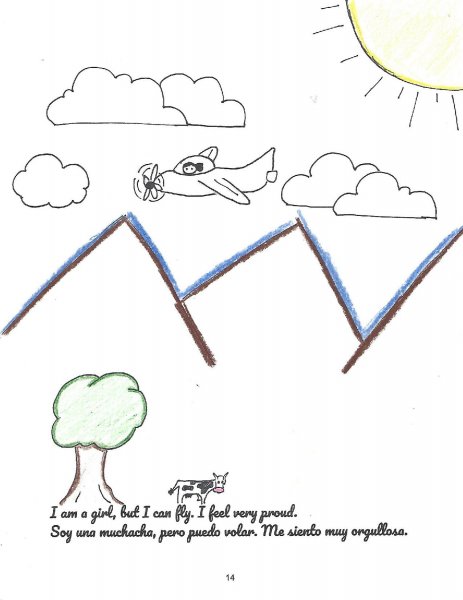 I am a girl, but I can fly. I feel very proud.
Soy una muchacha, pero puedo volar. Me siento muy orgullosa.
14